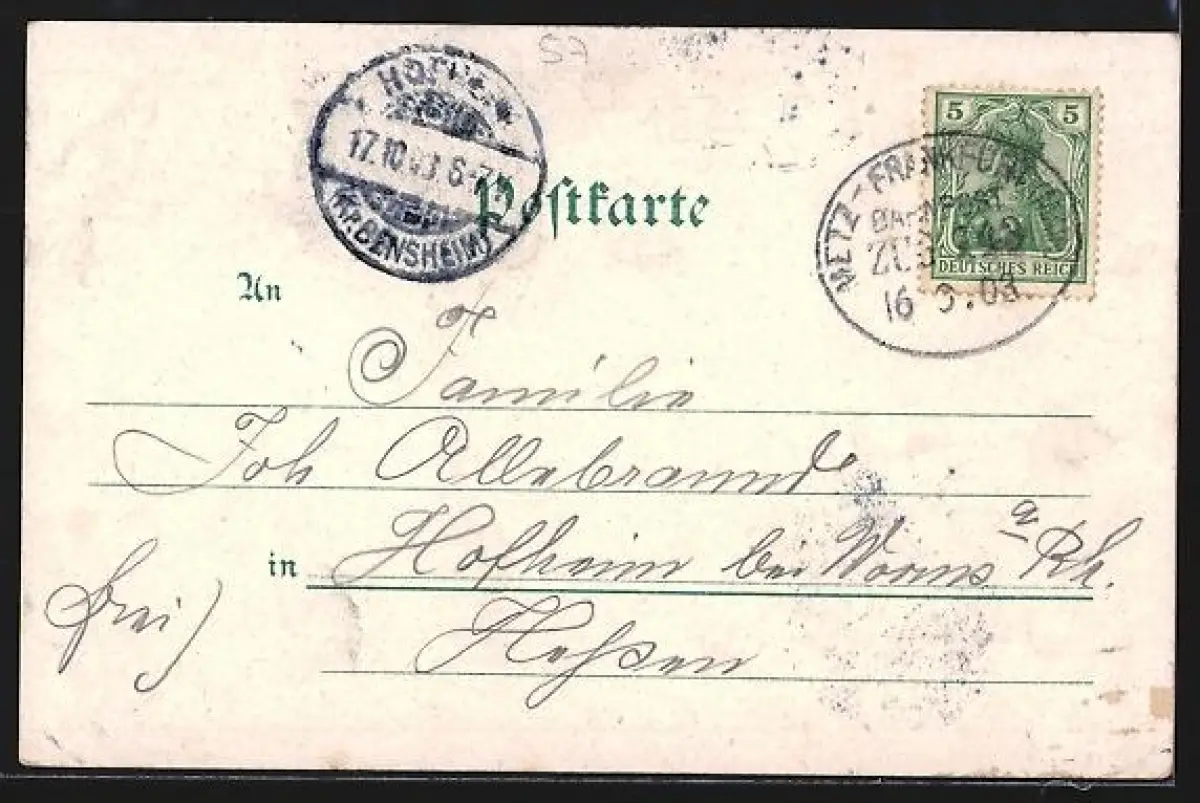 57
HOFHEIM
17.10.03. 6-7
(KR.BENSHEIM)
Postkarte
5 5
DEUTSCHES REICH
METZ-FRANKFURT
BAHNPOST
ZUG
16 03
An
Familie
Joh Allebrannd
in Hofheim bei Worms a Rh.
Heßen
frei)